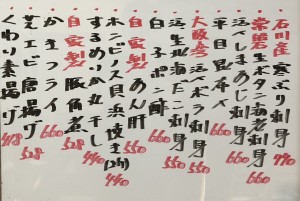 石川産 寒ぶり刺身 990
常磐 生ボタン海老刺身 660
活〆まあじ刺身 660
平目昆布〆 660
大阪湾 活〆ボラ刺身 550
活 北海たこ刺身 550
生白子ポン酢 660
自家製 あん肝 660
ホンビノス貝浜焼き(2ケ) 440
するめいか丸干し 440
自家製 豚角煮 528
かきフライ 660
芝エビ唐揚げ 528
くわい素揚げ 418